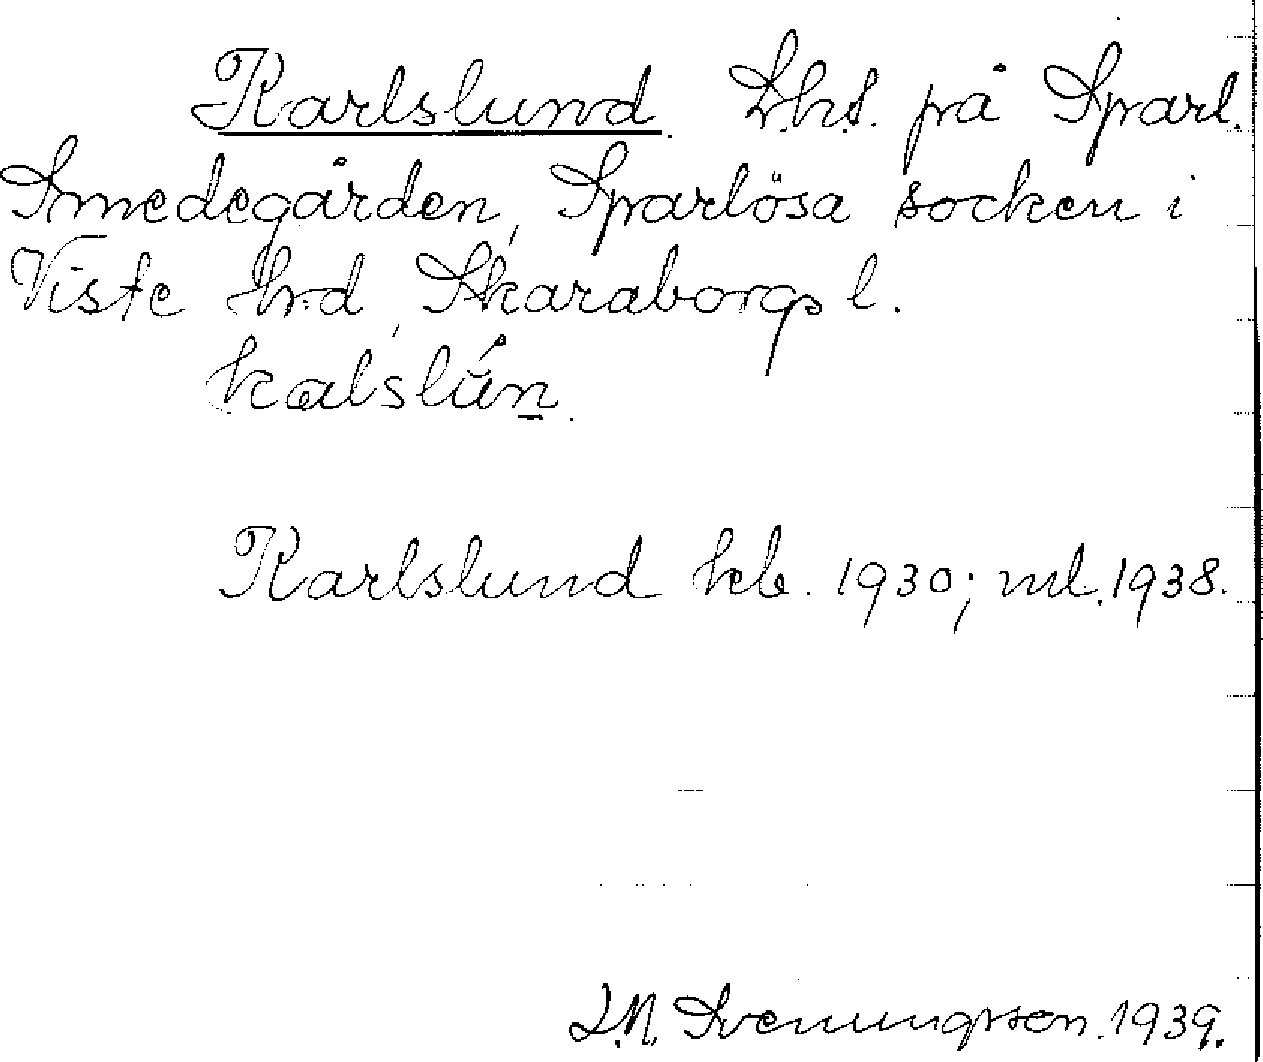 Karlslund. Lht. på Sparl.
Smedegården, Sparlösa socken i
Viste hrd, Skaraborgs l.
kalslún.
Karlslund kb. 1930; ml. 1938.
Svenungsson. 1939.